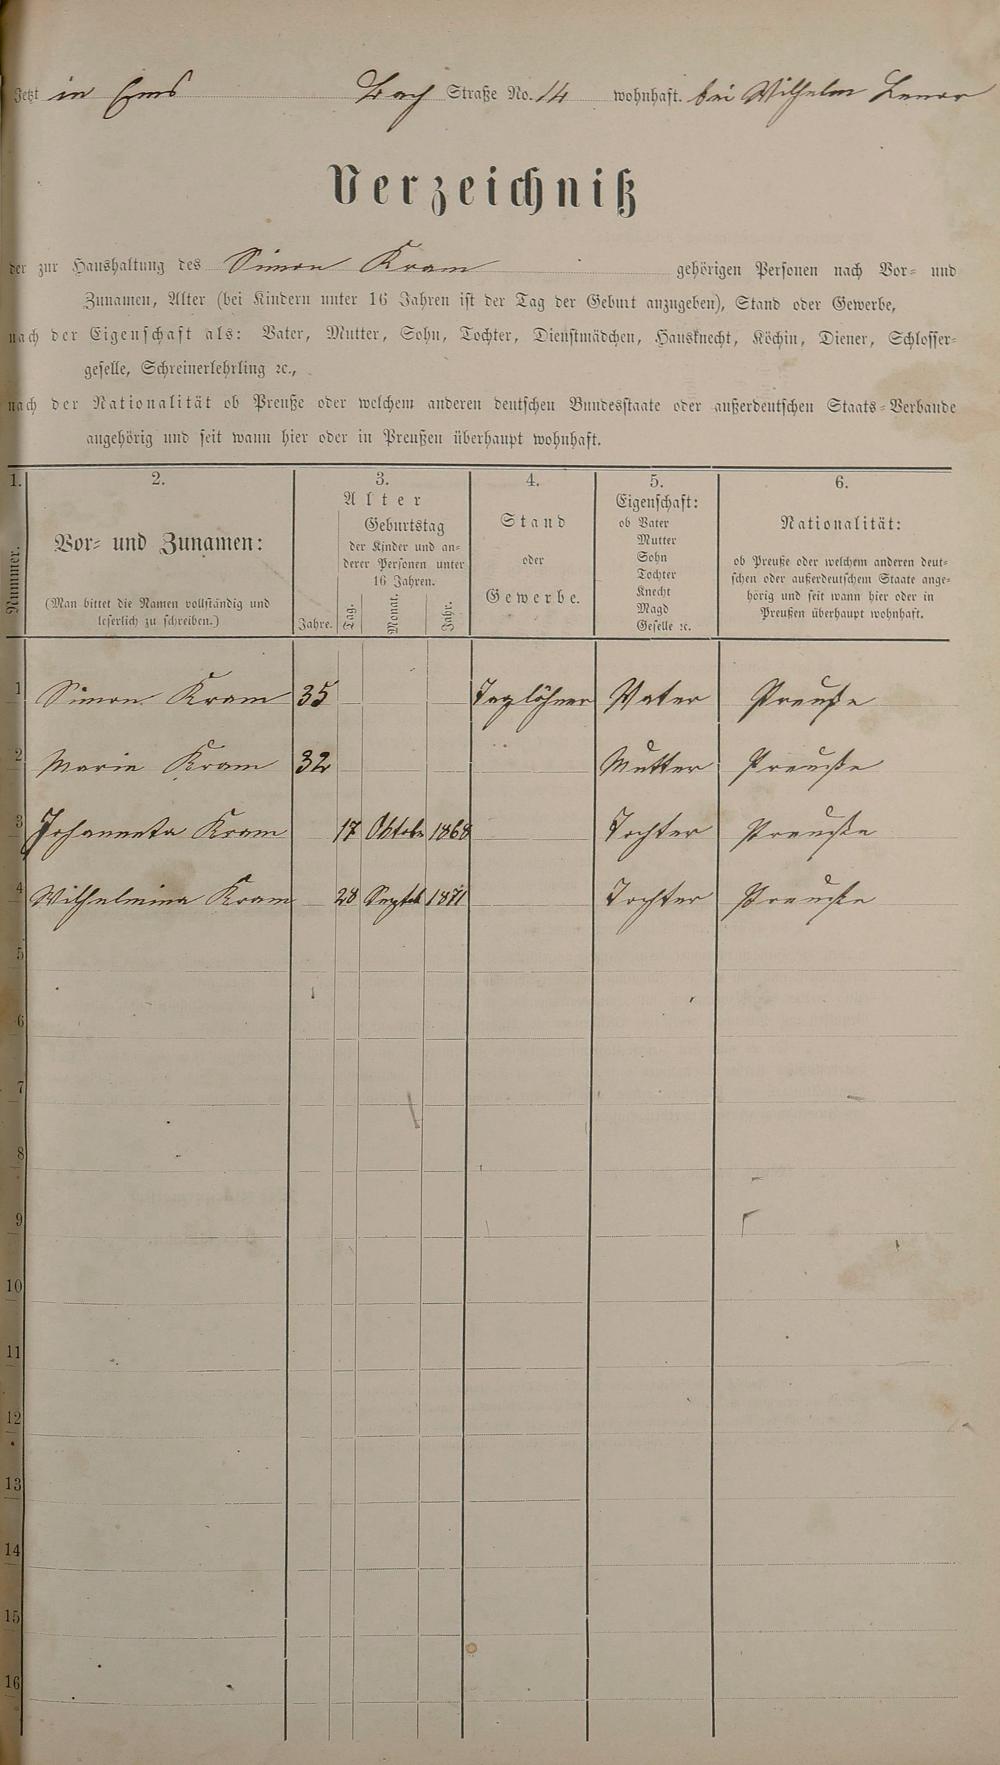 Jetzt in Ems Bach Straße No. 14 wohnhaft. bei Wilhelm
Verzeichniß
der zur Haushaltung des Simon Kram gehörigen Personen nach Vor- und
Zunamen, Alter (bei Kindern unter 16 Jahren ist der Tag der Geburt anzugeben), Stand oder Gewerbe,
nach der Eigenschaft als: Vater, Mutter, Sohn, Tochter, Dienstmädchen, Hausknecht, Köchin, Diener, Schlosser-
geselle, Schreinerlehrling ꝛc.,
nach der Nationalität ob Preuße oder welchem anderen deutschen Bundesstaate oder außerdeutschen Staats-Verbande
angehörig und seit wann hier oder in Preußen überhaupt wohnhaft.
1.
Nummer.
2.
Vor- und Zunamen:
(Man bittet die Namen vollständig und
leserlich zu schreiben.)
3.
Alter
Jahre.
Geburtstag
der Kinder und an-
derer Personen unter
16 Jahren.
Tag.
Monat.
Jahr.
4.
Stand
oder
Gewerbe.
5.
Eigenschaft:
ob Vater
Mutter
Sohn
Tochter
Knecht
Magd
Geselle ꝛc.
6.
Nationalität:
ob Preuße oder welchem anderen deut-
schen oder außerdeutschem Staate ange-
hörig und seit wann hier oder in
Preußen überhaupt wohnhaft.
1 Simon Kram 35 Taglöhner Vater Preuße
2 Marie Kram 32 Mutter Preuße
3 Johanneta Kram 17 Oktobr 1868 Tochter Preuße
4 Wilhelmina Kram 28 Septb 1871 Tochter Preuße
5
6
7
8
9
10
11
12
13
14
15
16